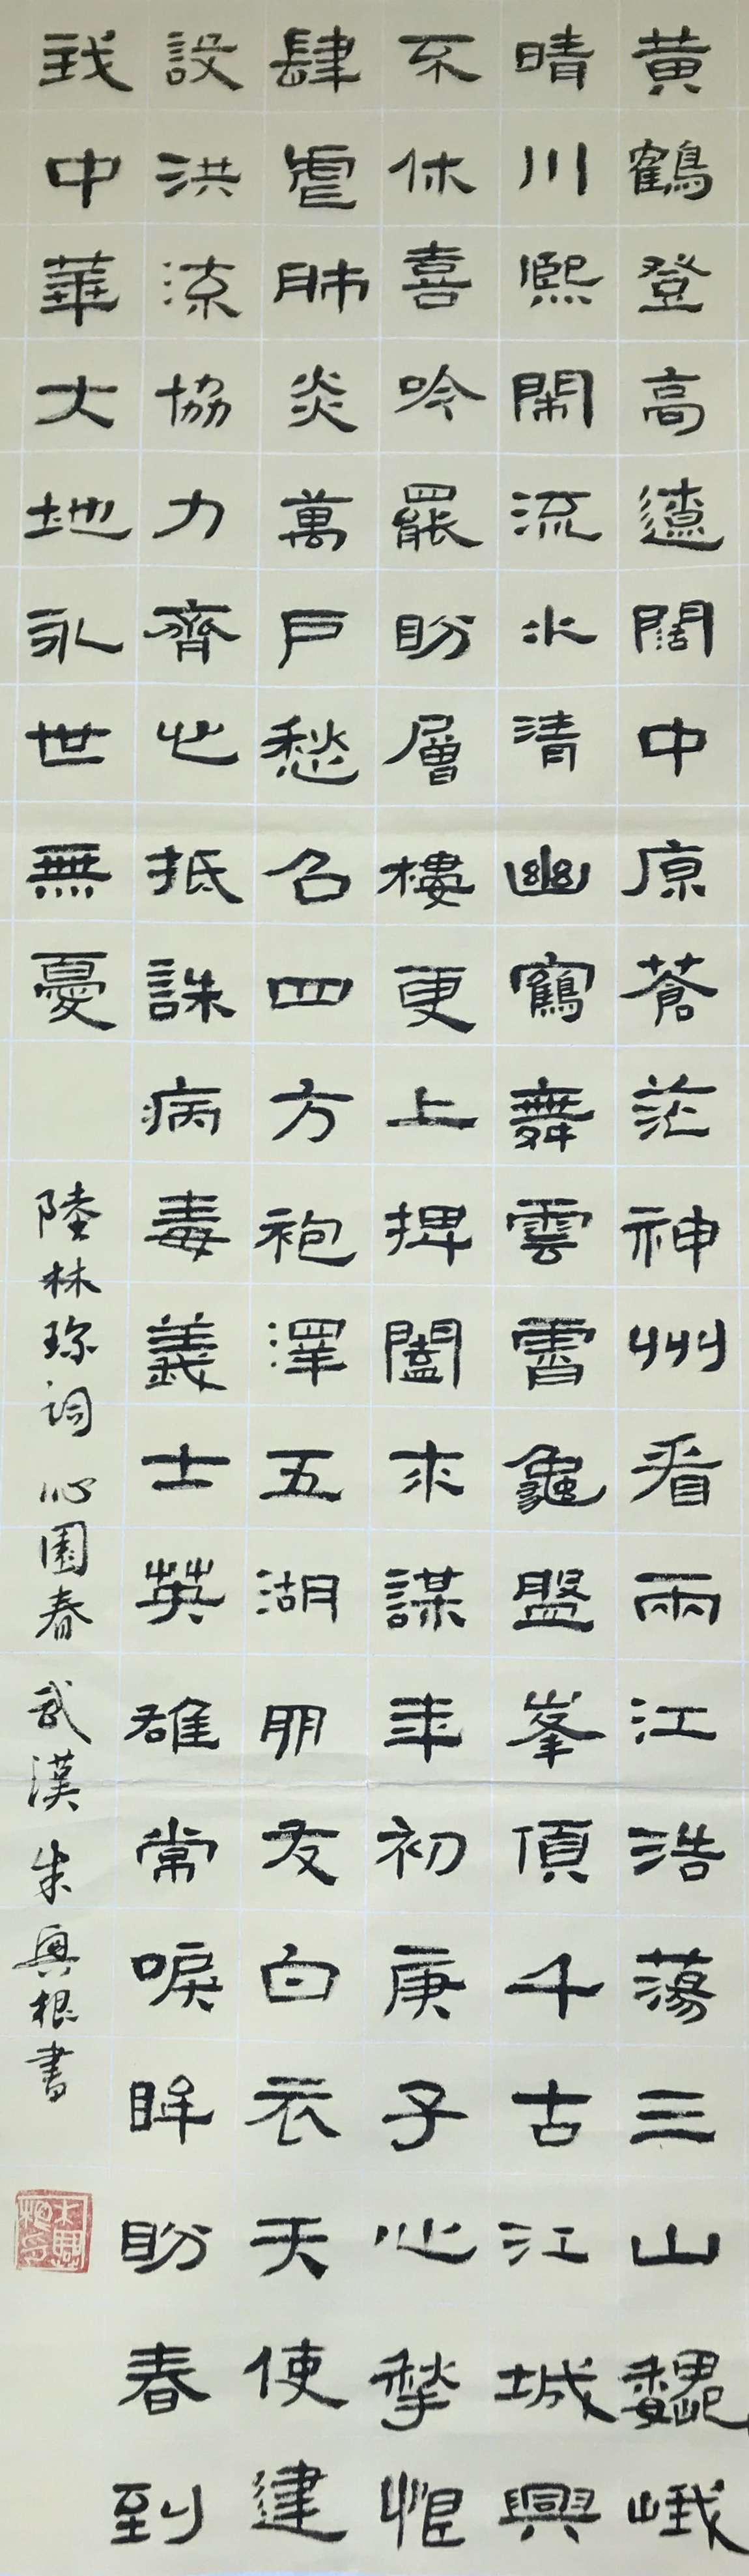 黄鶴登高遼闊中原蒼茫神州看兩江浩蕩三山巍峨
晴川熙閑流水清幽鶴舞雲霄龜盤峯頂千古江城興
不休喜吟罷盼層樓更上捭闔求謀年初庚子心揫恨
肆虐肺炎萬戶愁召四方袍澤五湖朋友白衣天使建
設洪流協力齊心抵誅病毒義士英雄常唳眸盼春到
我中華大地永世無憂
陸林珍詞沁園春 武漢 朱興根書
朱興根印